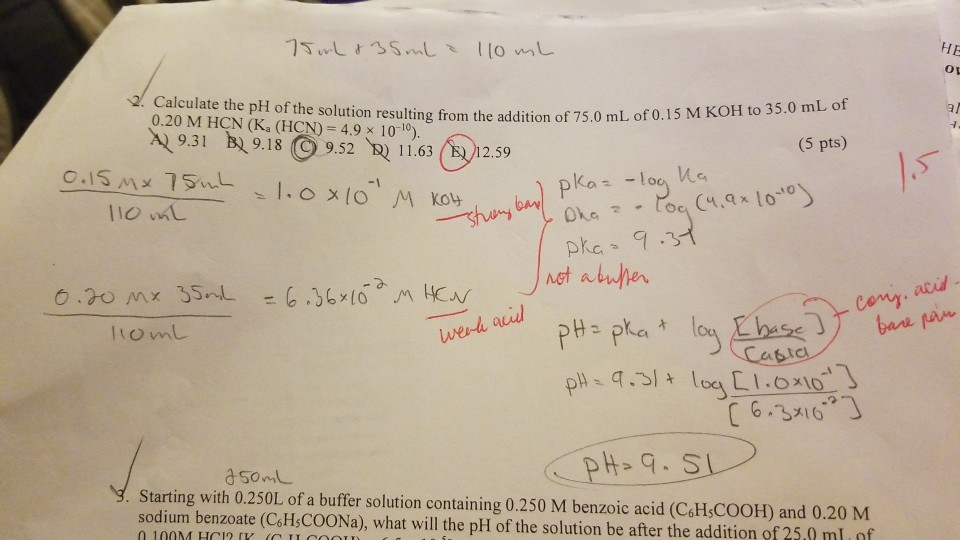 75mL + 35mL = 110 mL
HE
2. Calculate the pH of the solution resulting from the addition of 75.0 mL of 0.15 M KOH to 35.0 mL of
0.20 M HCN (Ka (HCN) = 4.9 × 10-10).
A) 9.31 B) 9.18 C) 9.52 D) 11.63 E) 12.59
(5 pts)
1.5
0.15 M x 75mL
110 mL
= 1.0 x10-1 M KOH
strong base
pKa = -log Ka
pka = - log (4.9x10-10)
pka = 9.31
not a buffer
0.20 Mx 35mL
110mL
= 6.36x10-2 M HCN
weak acid
pH = pka + log [base]
[acid]
conj. acid-
base pair
pH = 9.31 + log [1.0x10-1]
[6.3x10-2]
pH = 9.51
250mL
3. Starting with 0.250L of a buffer solution containing 0.250 M benzoic acid (C6H5COOH) and 0.20 M
sodium benzoate (C6H5COONa), what will the pH of the solution be after the addition of 25.0 mL of
0.100M HCl?